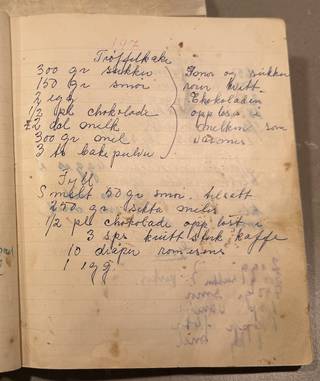 147
Trøffelkake
300 gr sukker
150 gr smør
2 egg
1/2 pl chokolade
2 dol melk
300 gr mel
3 ts bakepulver
Smør og sukker
rørt hvitt
Chokoladen
oppløses i
melken som
varmes
Fyll
Smelt 50 gr smør. tilsatt
250 gr sikta melis
1/2 pl chokolade oppløst i
3 sps kvitt sterk kaffe
10 dråper romessens
1 egg